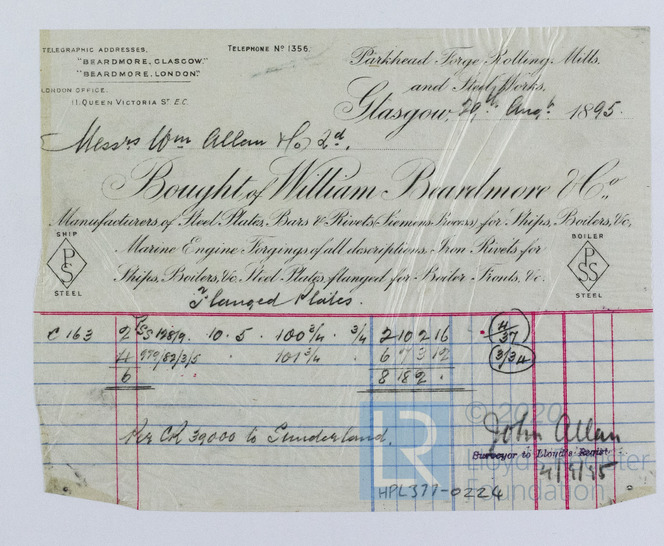 TELEGRAPHIC ADDRESSES.
"BEARDMORE, GLASGOW."
"BEARDMORE, LONDON."
LONDON OFFICE.
11, QUEEN VICTORIA ST E.C.
TELEPHONE No 1356.
Parkhead Forge Rolling Mills,
and Steel Works,
Glasgow, 29th Augt 1895.
Messrs Wm Allan & Co Ld.
Bought of William Beardmore & Co.,
Manufacturers of Steel Plates, Bars & Rivets (Siemens Process) for Ships, Boilers, &c,
Marine Engine Forgings of all descriptions. Iron Rivets for
Ships, Boilers, &c. Steel Plates flanged for Boiler Fronts, &c.
SHIP
PS
STEEL
BOILER
PSS
STEEL
Flanged Plates.
C 163 2 10 . 5 . 100 3/4 . 3/4 2 10 2 16 4/37
4 101 3/4 . 6 7 3 12 3/34
6 8 18 2 .
Per CR 39000 to Sunderland.
John Allan
Surveyor to Lloyd's Register
4/9/95
HPL377-0224
LR
© 2020
Lloyd's Register
Foundation